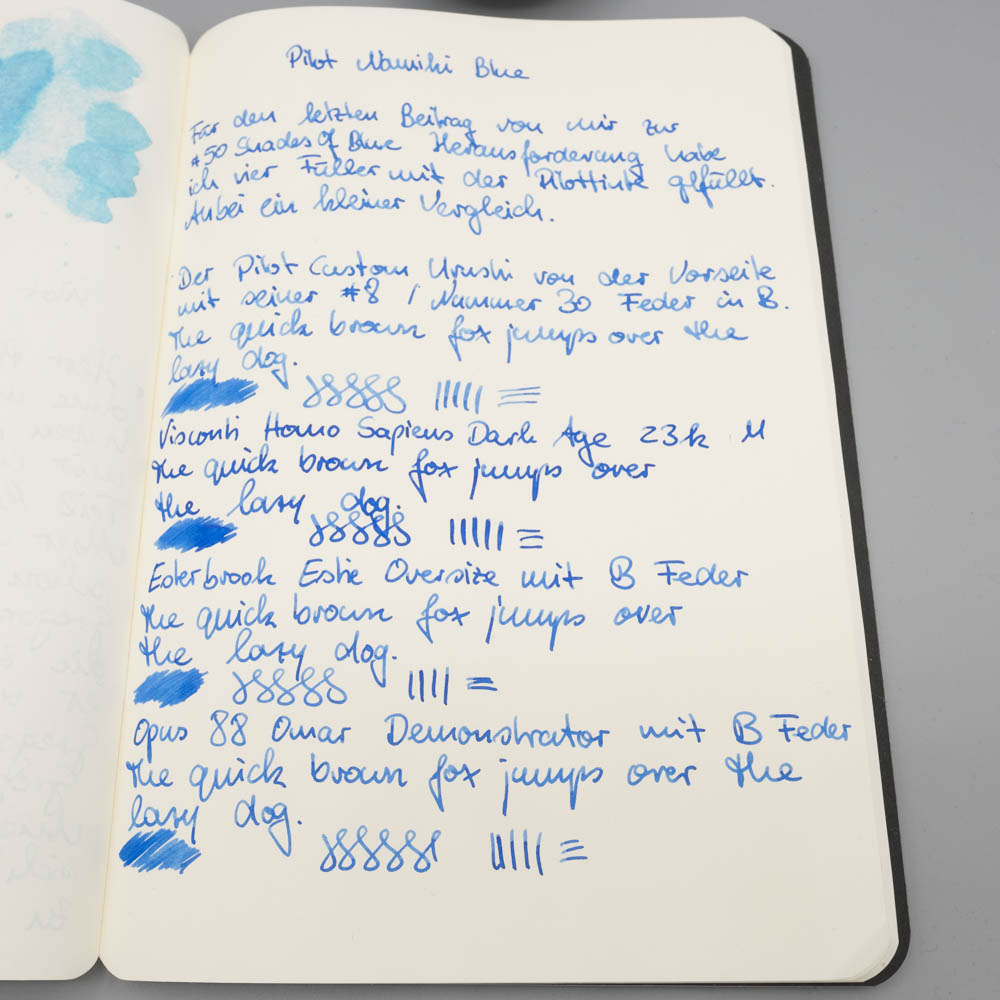 Pilot Namiki Blue
Für den letzten Beitrag von mir zur
#50 Shades Of Blue Herausforderung habe
ich vier Füller mit der Pilottinte gefüllt.
Anbei ein kleiner Vergleich.
Der Pilot Custom Urushi von der Vorseite
mit seiner #8 / Nummer 30 Feder in B.
the quick brown fox jumps over the
lasy dog.
Visconti Homo Sapiens Dark Age 23k M
the quick brown fox jumps over
the lasy dog.
Esterbrook Estie Oversize mit B Feder
the quick brown fox jumps over
the lasy dog.
Opus 88 Omar Demonstrator mit B Feder
the quick brown fox jumps over the
lasy dog.